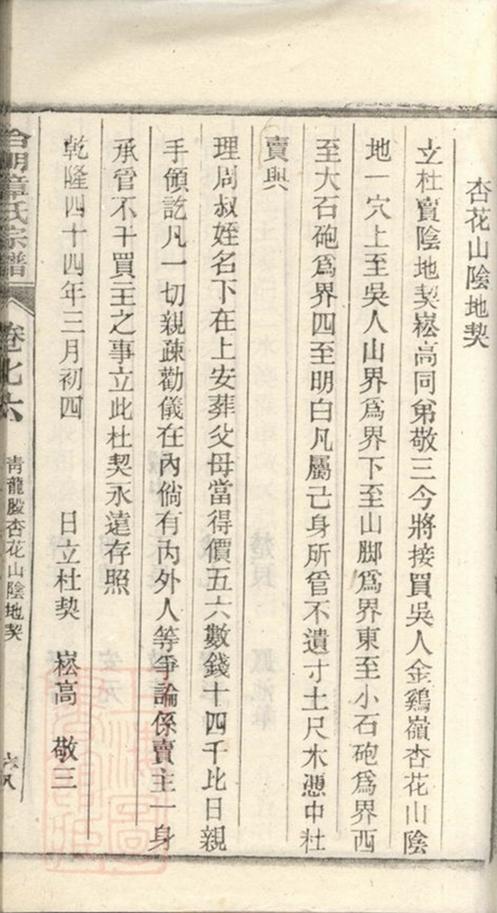 杏花山陰地契
立杜賣陰地契崧高同弟敬三今將接買吳人金鷄嶺杏花山陰
地一穴上至吳人山界爲界下至山脚爲界東至小石砲爲界西
至大石砲爲界四至明白凡屬己身所管不遺寸土尺木憑中杜
賣與
理周叔姪名下在上安葬父母當得價五六數錢十四千比日親
手領訖凡一切親疎勸儀在內倘有內外人等爭論係賣主一身
承管不干買主之事立此杜契永遠存照
乾隆四十四年三月初四 日立杜契 崧高 敬三
章氏宗譜 卷七六 青龍 杏花山陰地契 六八